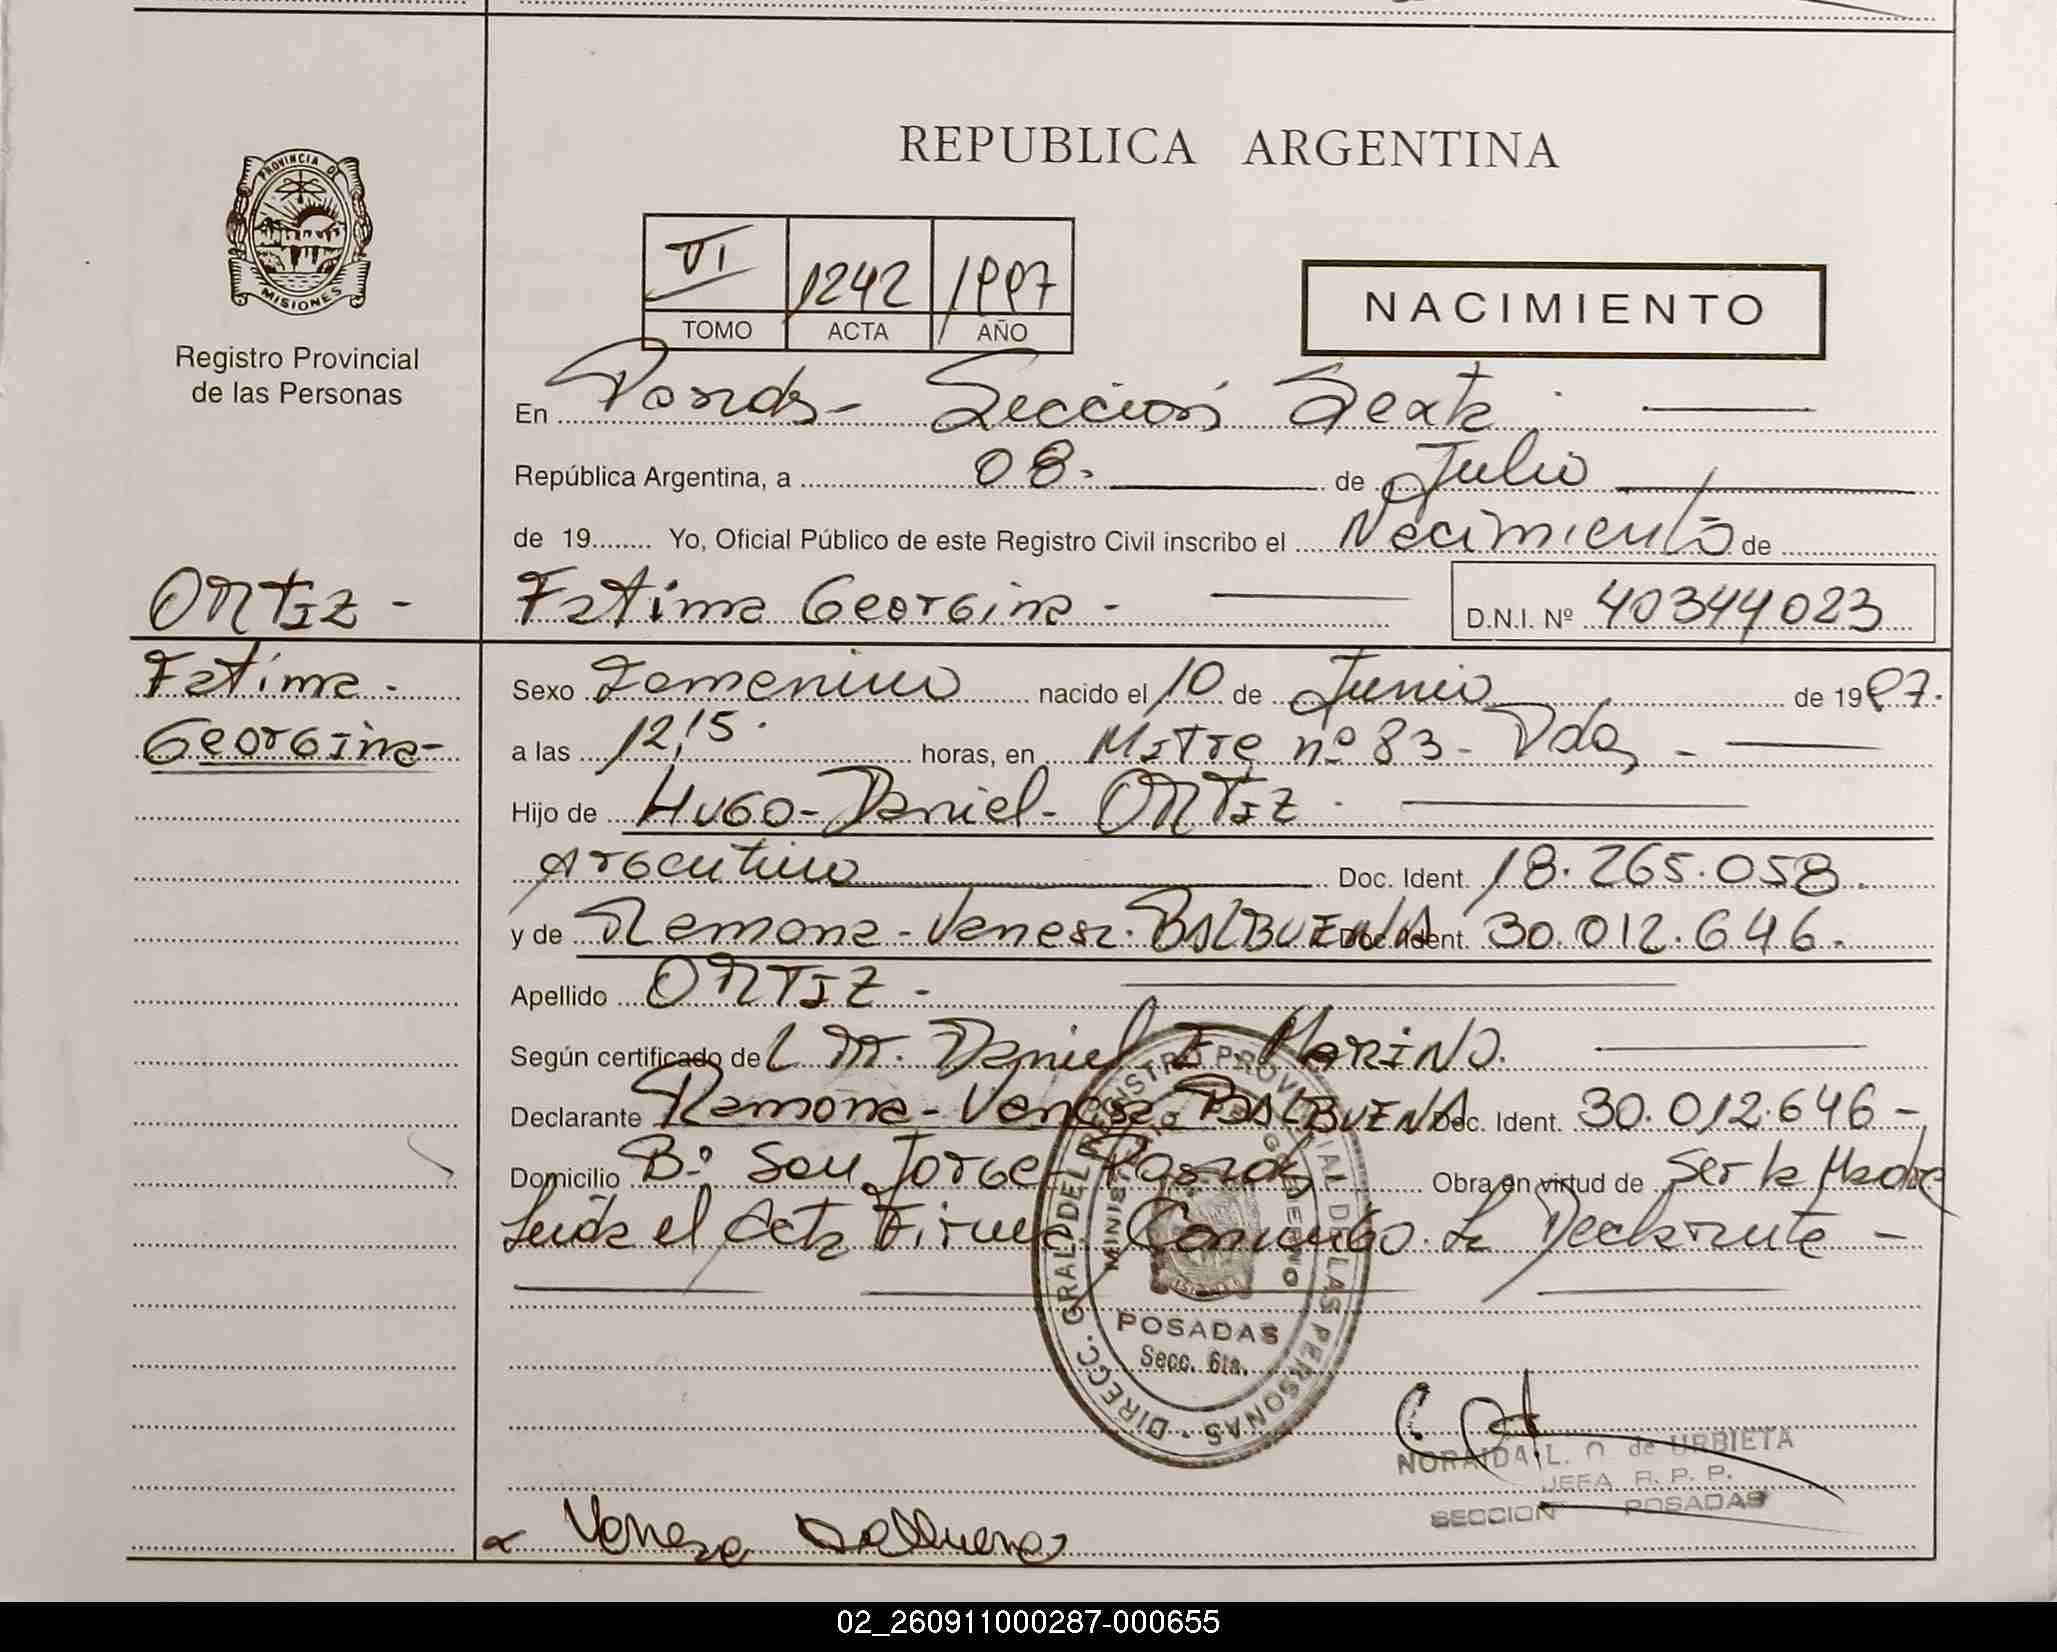 REPUBLICA ARGENTINA
PROVINCIA DE
MISIONES
Registro Provincial
de las Personas
VI 1242 1997
TOMO ACTA AÑO
NACIMIENTO
En Posadas - Sección Sexta
República Argentina, a 08 de Julio
de 19 Yo, Oficial Público de este Registro Civil inscribo el Nacimiento de
ORTIZ - Fatima Georgina - D.N.I. Nº 40344023
Fatima - Sexo Femenino nacido el 10 de Junio de 1997.
Georgina - a las 12,15 horas, en Mitre nº 83 - Pdas -
Hijo de Hugo - Daniel - ORTIZ -
Argentino Doc. Ident. 18.265.058.
y de Ramona - Vanesa - BALBUENA Doc. Ident. 30.012.646.
Apellido ORTIZ -
Según certificado de L M. Daniel E. MARINO.
Declarante Ramona - Vanesa BALBUENA Doc. Ident. 30.012.646 -
Domicilio Bº San Jorge - Posadas Obra en virtud de ser la Madre
Leida el Acta Firma Conmigo la Declarante -
DIRECC. GRAL. DEL REGISTRO PROVINCIAL DE LAS PERSONAS
MINISTERIO DE GOBIERNO
POSADAS
Secc. 6ta.
NORAIDA L. O. de URBIETA
JEFA R. P. P.
SECCION POSADAS
Vanesa Balbuena
02_260911000287-000655